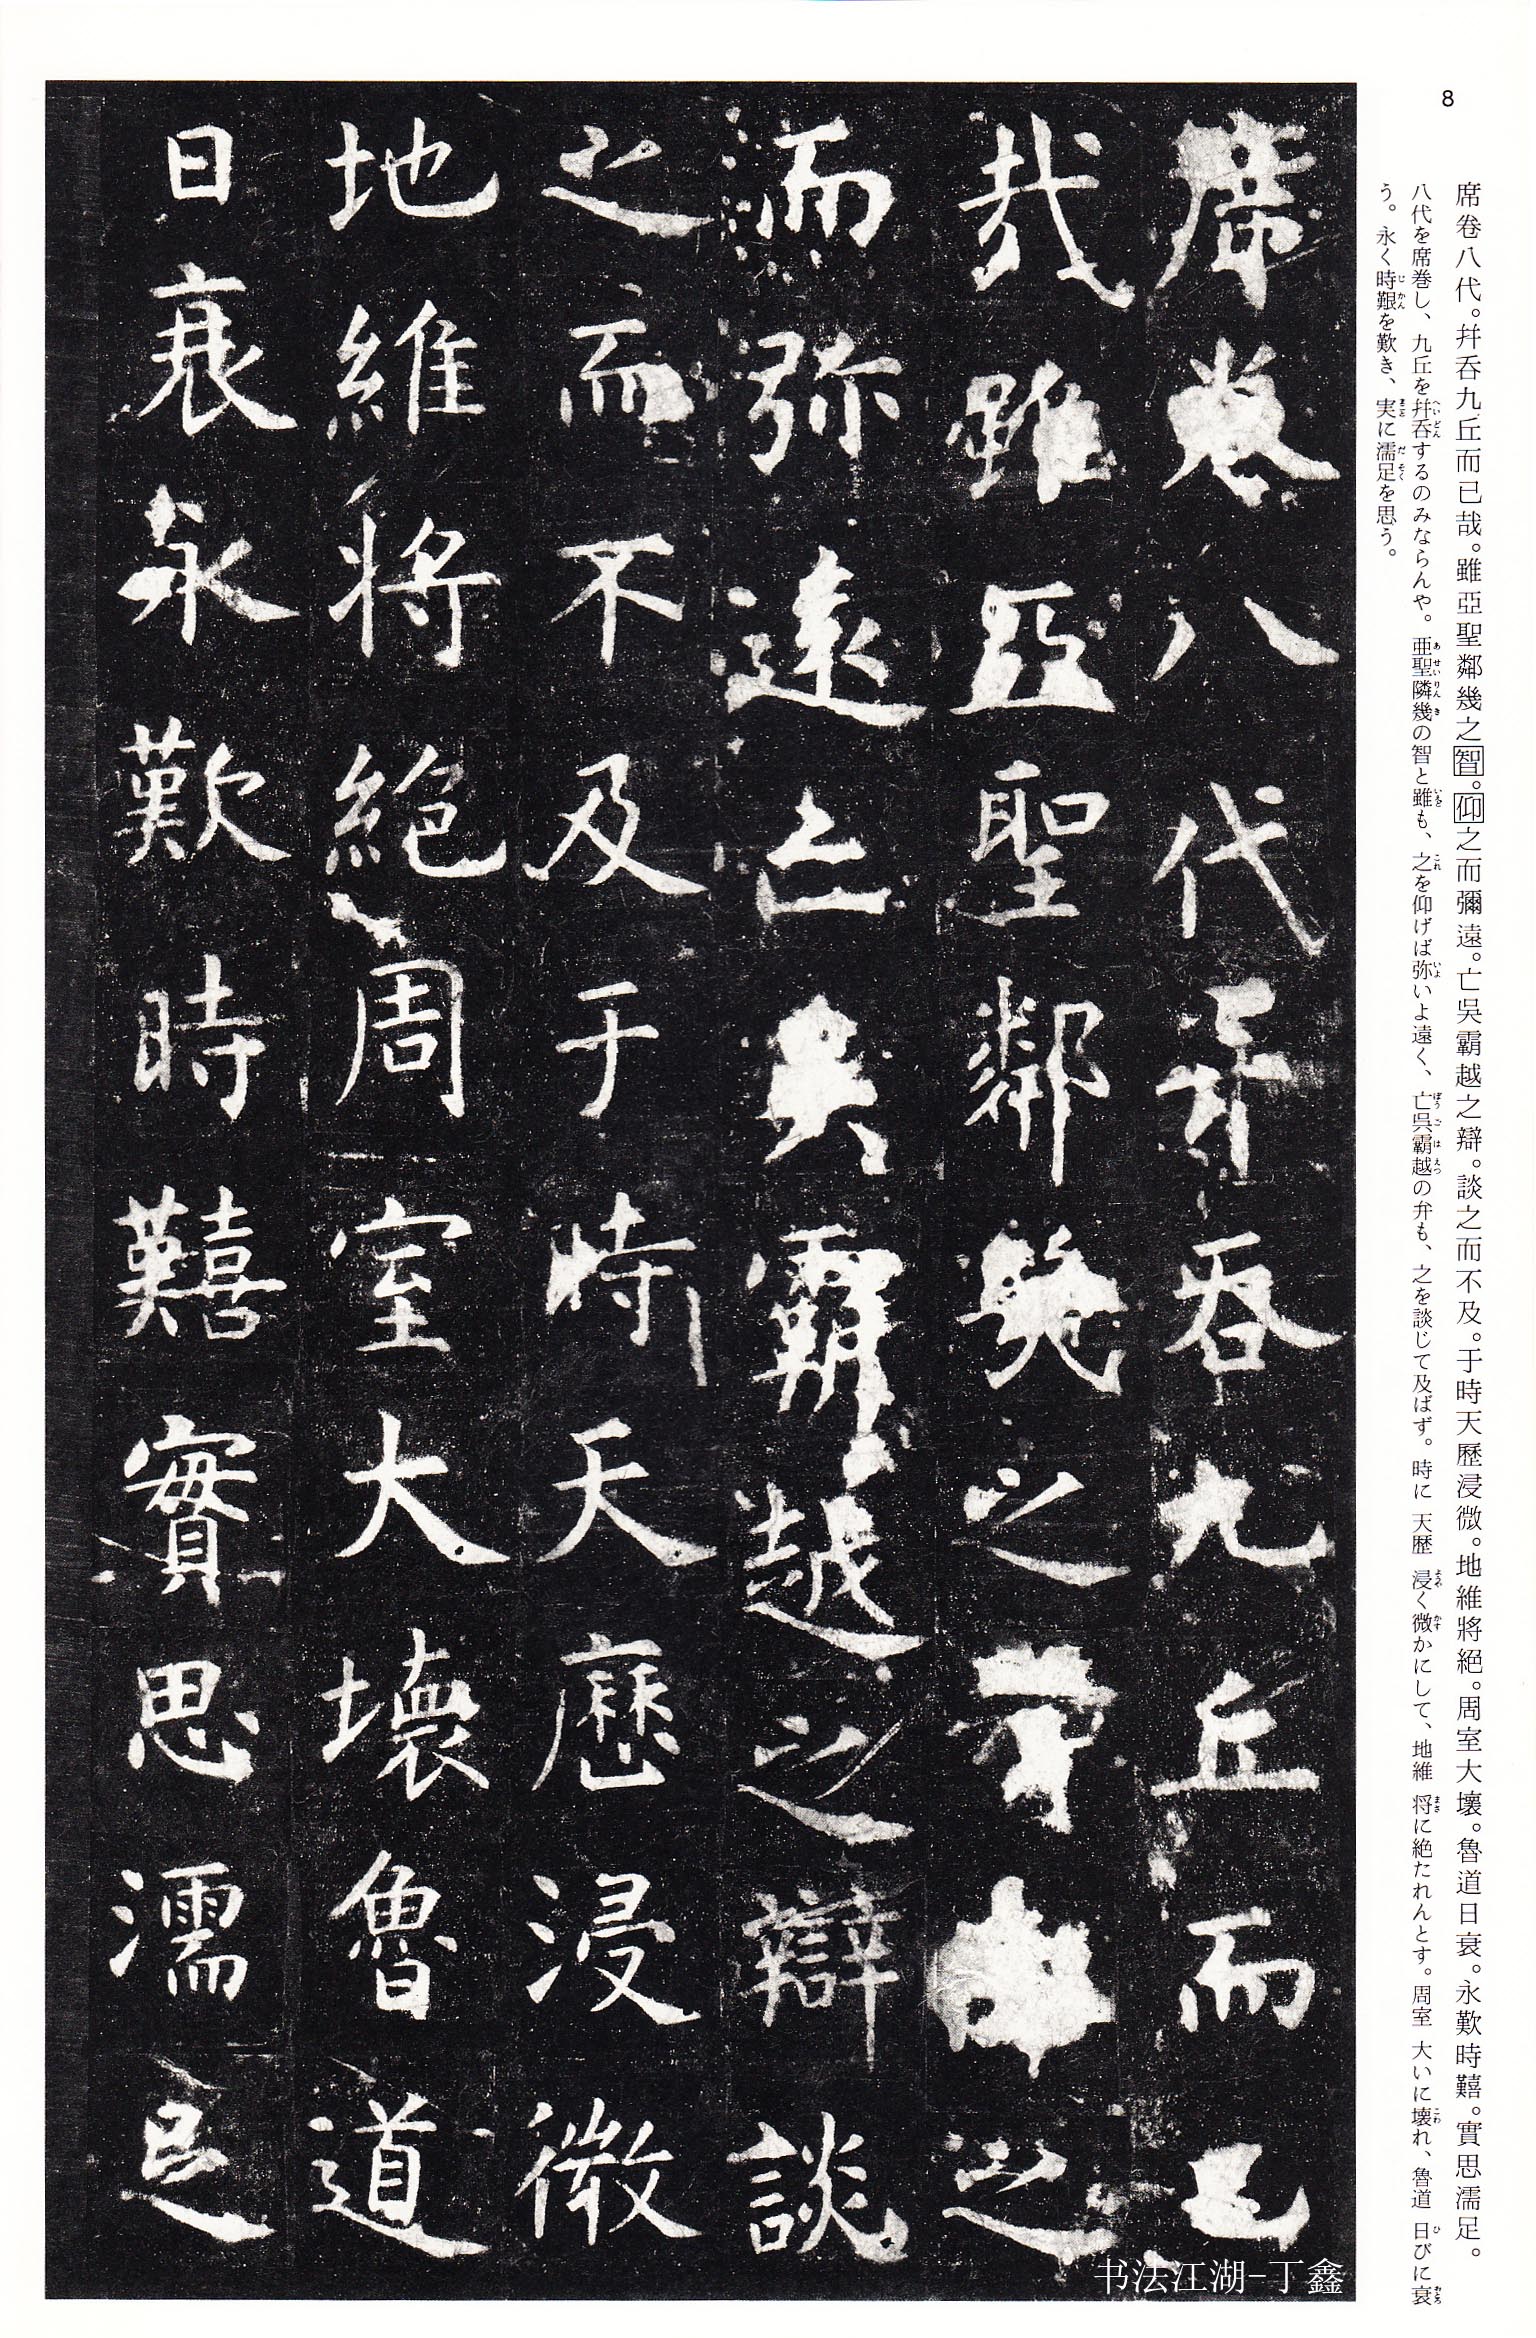 8
席卷八代。幷吞九丘而已哉。雖亞聖鄰幾之智。仰之而彌遠。亡吳霸越之辯。談之而不及。于時天歷浸微。地維將絕。周室大壞。魯道日衰。永歎時囏。實思濡足。
八代を席巻し、九丘を幷呑するのみならんや。亜聖隣幾の智と雖も、之を仰げば弥いよ遠く、亡呉霸越の弁も、之を談じて及ばず。時に天歴浸く微かにして、地維将に絶たれんとす。周室大いに壊れ、魯道日びに衰
う。永く時艱を歎き、実に濡足を思う。
席卷八代幷吞九丘而已
哉雖亞聖鄰幾之
之
而弥遠亡吳霸越之辯談
之而不及于時天歷浸微
地維將絕周室大壞魯道
日衰永歎時囏實思濡足
书法江湖-丁鑫